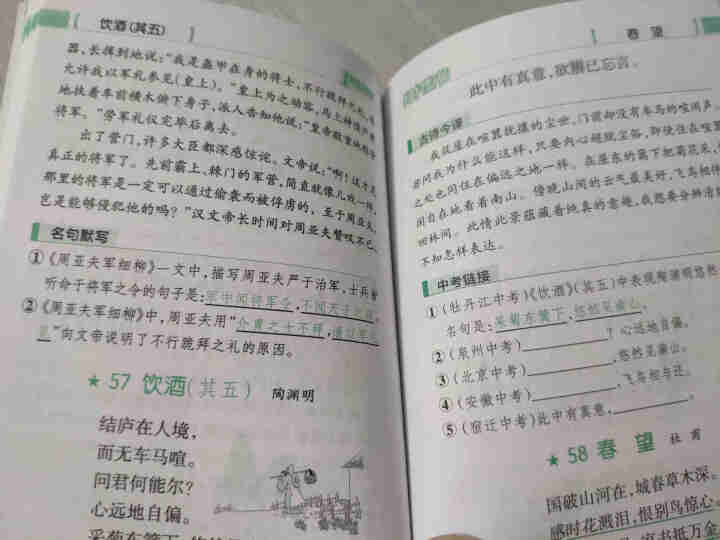 饮酒(其五)
器,长揖到地说:“我是盔甲在身的将士,不行跪拜之礼,
允许我以军礼参见(皇上)。”皇上为之动容,马上
地扶着车前横木俯下身子,派人告知他说:“皇帝敬重地慰劳
将军。”劳军礼仪完毕后离去。
出了营门,许多大臣都深感惊诧。文帝说:“啊!这才是
真正的将军了。先前霸上、棘门的军营,简直就像儿戏一样,
那里的将军是一定可以通过偷袭而被俘虏的,至于周亚夫,
岂是能够侵犯他的吗?”汉文帝长时间对周亚夫赞叹不已。
名句默写
①《周亚夫军细柳》一文中,描写周亚夫严于治军,士兵
听命于将军之令的句子是:军中闻将军令,不闻天子之诏。
②《周亚夫军细柳》中,周亚夫用“介胄之士不拜,请以军礼
见”向文帝说明了不行跪拜之礼的原因。
★ 57 饮酒(其五) 陶渊明
结庐在人境,
而无车马喧。
问君何能尔?
心远地自偏。
采菊东篱下,
春望
此中有真意,欲辨已忘言。
古诗今译
我居屋在喧嚣扰攘的尘世,门前却没有车马的喧闹声。
要问我为什么能这样,只要内心超脱尘俗,即使住在喧
之处也同住在偏远之地一样。在屋东的篱下把菊花采,
闲自在地看着南山。傍晚山间的云气最美好,飞鸟相伴
回林间。此情此景蕴藏着纯真的意趣,我想要分辨清
不知怎样表达。
中考链接
①(牡丹江中考)《饮酒》(其五)中表现陶渊明悠然
名句是:采菊东篱下,悠然见南山。
②(泉州中考)? 心远地自偏。
③(北京中考),悠然见南山。
④(安徽中考),飞鸟相与还。
⑤(宿迁中考)此中有真意,。
★ 58 春望 杜甫
国破山河在,城春草木深。
感时花溅泪,恨别鸟惊心。
家书抵万金